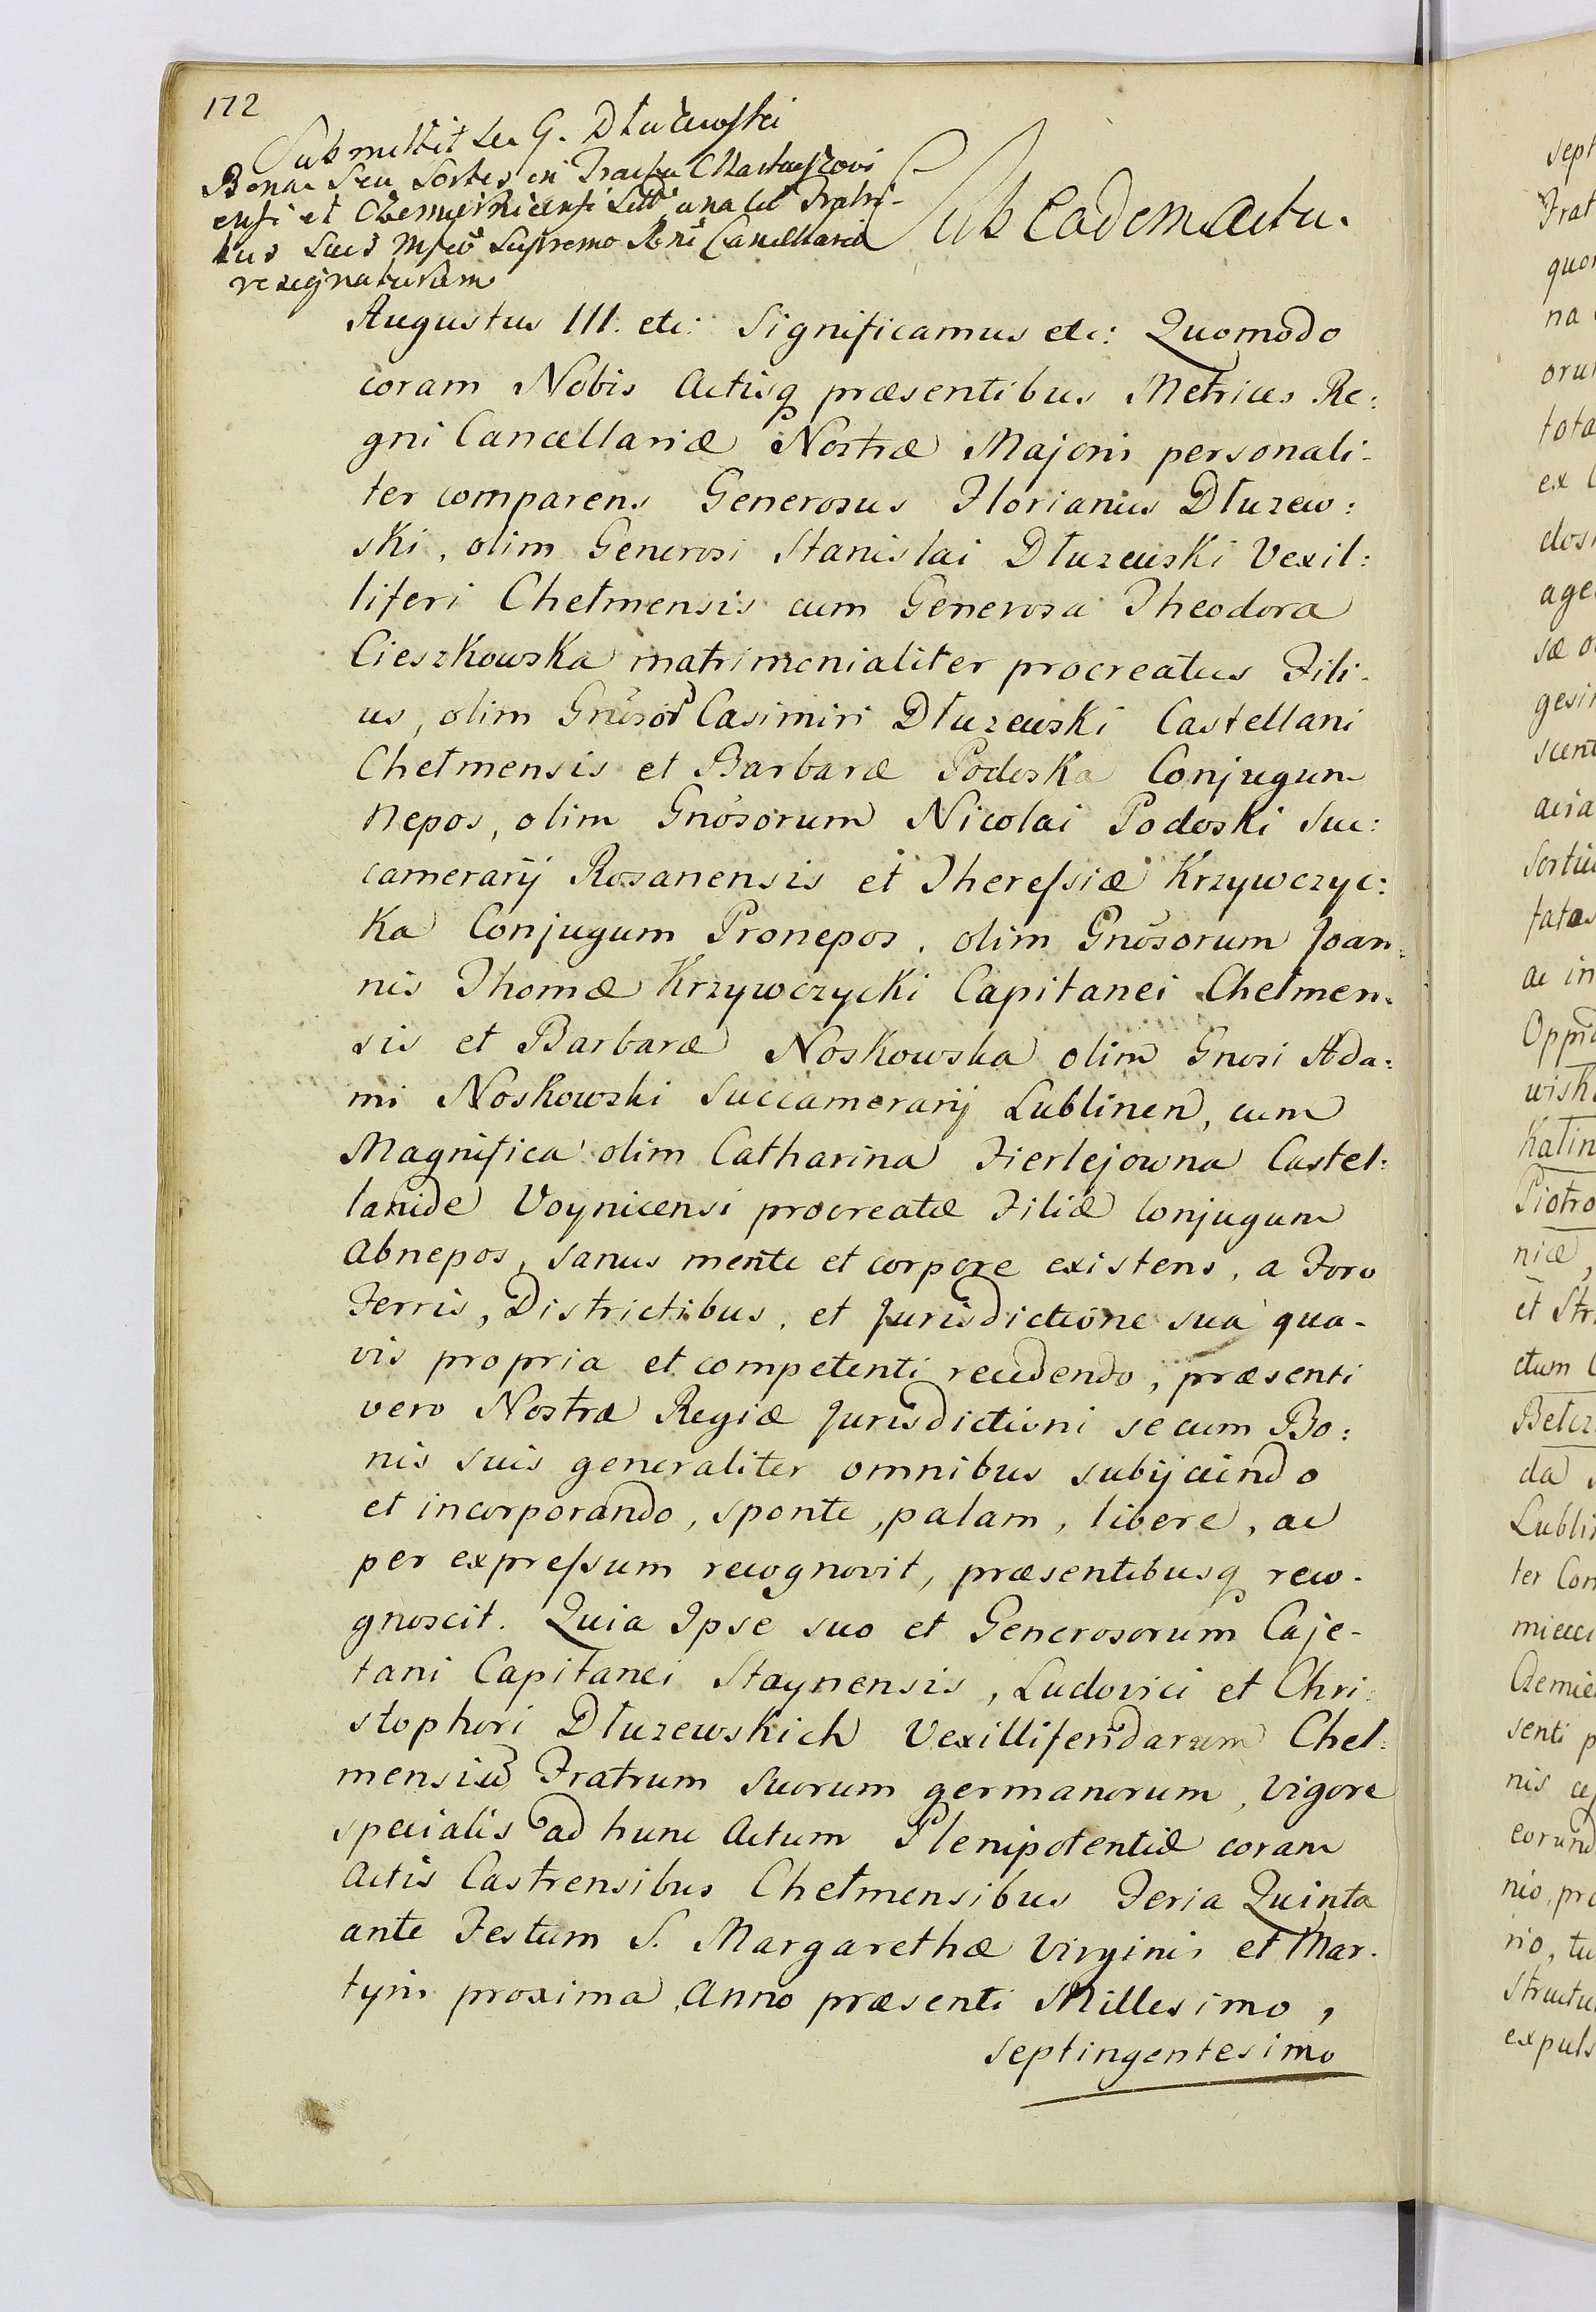 172
Submittit se G. Dłuzewski
Bona seu Sortes in Tractu
ensi et una cū Fratri-
bus suis Mfco Supremo Rni Cancellario
resignaturum
Sub eadem Actu.
Augustus III. etc: Significamus etc: Quomodo
coram Nobis Actisq præsentibus Metrices Re:
gni Cancellariæ Nostræ Majoris personali-
ter comparens Generosus Florianus Dłuzew:
ski, olim Generosi Stanislai Dłuzewski Vexil:
liferi Chełmensis cum Generosa Theodora
Cieszkowska matrimonialiter procreatus Fili-
us, olim Gnrosor Casimiri Dłuzewski Castellani
Chełmensis et Barbaræ Podoska Conjugum
Nepos, olim Gnosorum Nicolai Podoski Suc:
camerarij Rozanensis et Theressiæ Krzywczyc:
ka Conjugum Pronepos, olim Gnosorum Joan:
nis Thomæ Krzywczycki Capitanei Chełmen:
sis et Barbaræ Noskowska olim Gnosi Ada:
mi Noskowski Succamerarij Lublinen, cum
Magnifica olim Catharina Firlejowna Castel:
lanide Voynicensi procreatæ Filiæ Conjugum
Abnepos, sanus mente et corpore existens, a Foro
Terris, Districtibus, et Jurisdictione sua qua-
vis propria et competenti recedendo, præsenti
vero Nostræ Regiæ Jurisdictioni se cum Bo:
nis suis generaliter omnibus subijciendo
et incorporando, sponte, palam, libere, ac
per expressum recognovit, præsentibusq reco-
gnoscit. Quia Ipse suo et Generosorum Caje-
tani Capitanei Staynensis, Ludovici et Chri:
stophori Dłuzewskich Vexilliferidarum Cheł:
mensiū Fratrum Suorum germanorum, vigore
specialis ad hunc Actum Plenipotentiæ coram
Actis Castrensibus Chełmensibus Feria Quinta
ante Festum S. Margarethæ Virginis et Mar-
tyris proxima Anno præsenti Millesimo,
septingentesimo